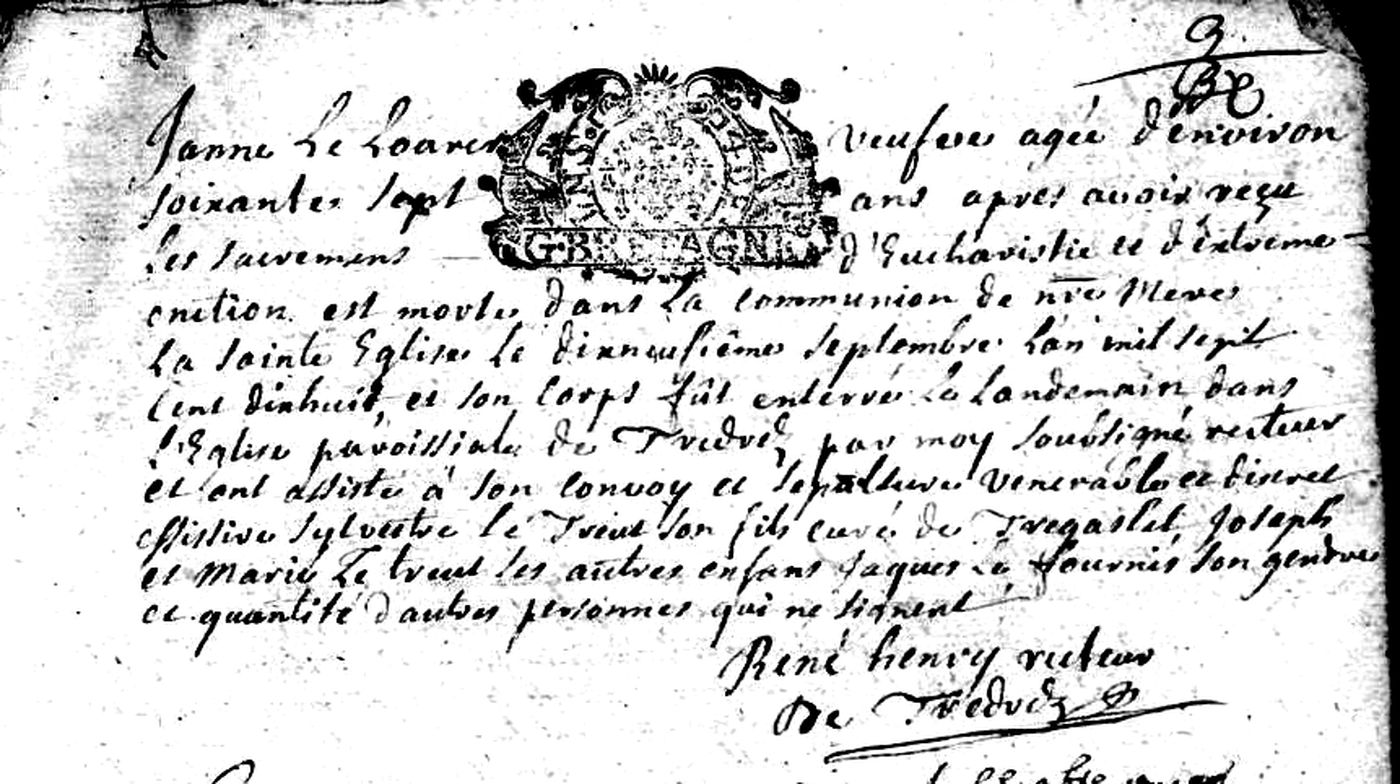 9
Janne Le Loarer veufve agée d'environ
soixante sept ans apres avoir reçu
Les sacremens d'Eucharistie et d'extreme
onction est morte dans La communion de nr̃e Mere
La sainte Eglise Le dixneufiême septembre L'an mil sept
Cent dixhuit, et son Corps fût enterré Le Landemain dans
L'Eglise paroissiale de Tredrez par moy soubsigné recteur
et ont assisté à son convoy et sepulture venerable et discret
Missire Sylvestre Le Treut son fils curé de Tregastel Joseph
et Marie Le treut ses autres enfans Jaques Le Fournis son gendre
et quantité d'autres personnes qui ne signent
G·BRETAGNE
René henry recteur
De Tredrez